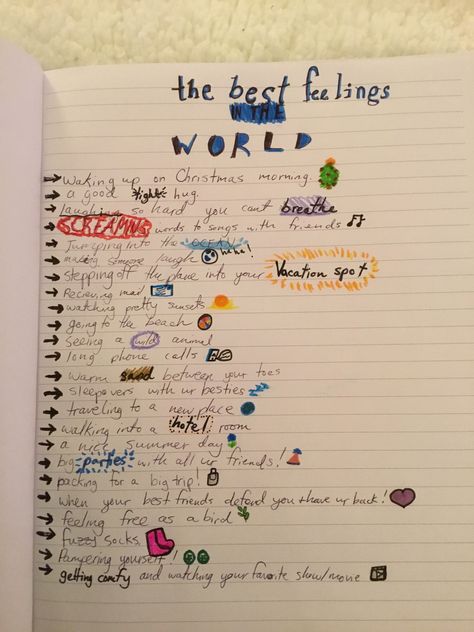 the best feelings
IN THE
WORLD
→ Waking up on Christmas morning.
→ a good tight hug.
→ laughing so hard you cant breathe
→ SCREAMING words to songs with friends
→ Jumping into the OCEAN
→ making someone laugh haha!
→ stepping off the plane into your Vacation spot
→ Recieving mail
→ watching pretty sunsets
→ going to the beach
→ Seeing a wild animal
→ long phone calls
→ warm sand between your toes
→ sleepovers with ur besties
→ traveling to a new place
→ walking into a hotel room
→ a nice summer day
→ big parties with all ur friends!
→ packing for a big trip!
→ when your best friends defend you + have ur back!
→ feeling free as a bird
→ fuzzy socks
→ Pampering yourself!
→ getting comfy and watching your favorite show/movie